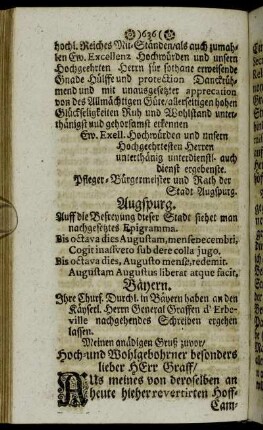 )636(
hochl. Reiches Mit-Ständen/als auch zumah-
len Ew. Excellenz Hochwürden und unsern
Hochgeehrten Herrn für sothane erweisende
Gnade Hülffe und protection Danckrüh-
mend und mit unausgesetzter apprecation
von des Allmächtigen Güte/ allerseitigen hohen
Glückseligkeiten Ruh und Wohlstand unter-
thänigst und gehorsamst erkennen
Ew. Exell. Hochwürden und unsern
Hochgeehrtesten Herren
unterthänig unterdienstl. auch
dienst ergebenste.
Pfleger-Bürgermeister und Rath der
Stadt Augspurg.
Augspurg.
Auff die Befreyung dieser Stadt siehet man
nachgesetztes Epigramma.
Bis octava dies Augustam, mense Decembri,
Cogit inauspato sub dere colla jugo,
Bis octava dies, Augusto mense, redemit.
Augustam Augustus liberat atque facit.
Bäyern.
Ihre Churf. Durchl. in Bäyern haben an den
Käyserl. Herrn General Graffen d' Erbe-
ville nachgehendes Schreiben ergehen
lassen.
Meinen gnädigen Gruß zuvor/
Hoch-und Wohlgebohrner besonders
lieber HErr Graff/
AUs meines von deroselben an
heute hieher revertirten Hoff-
Cam-